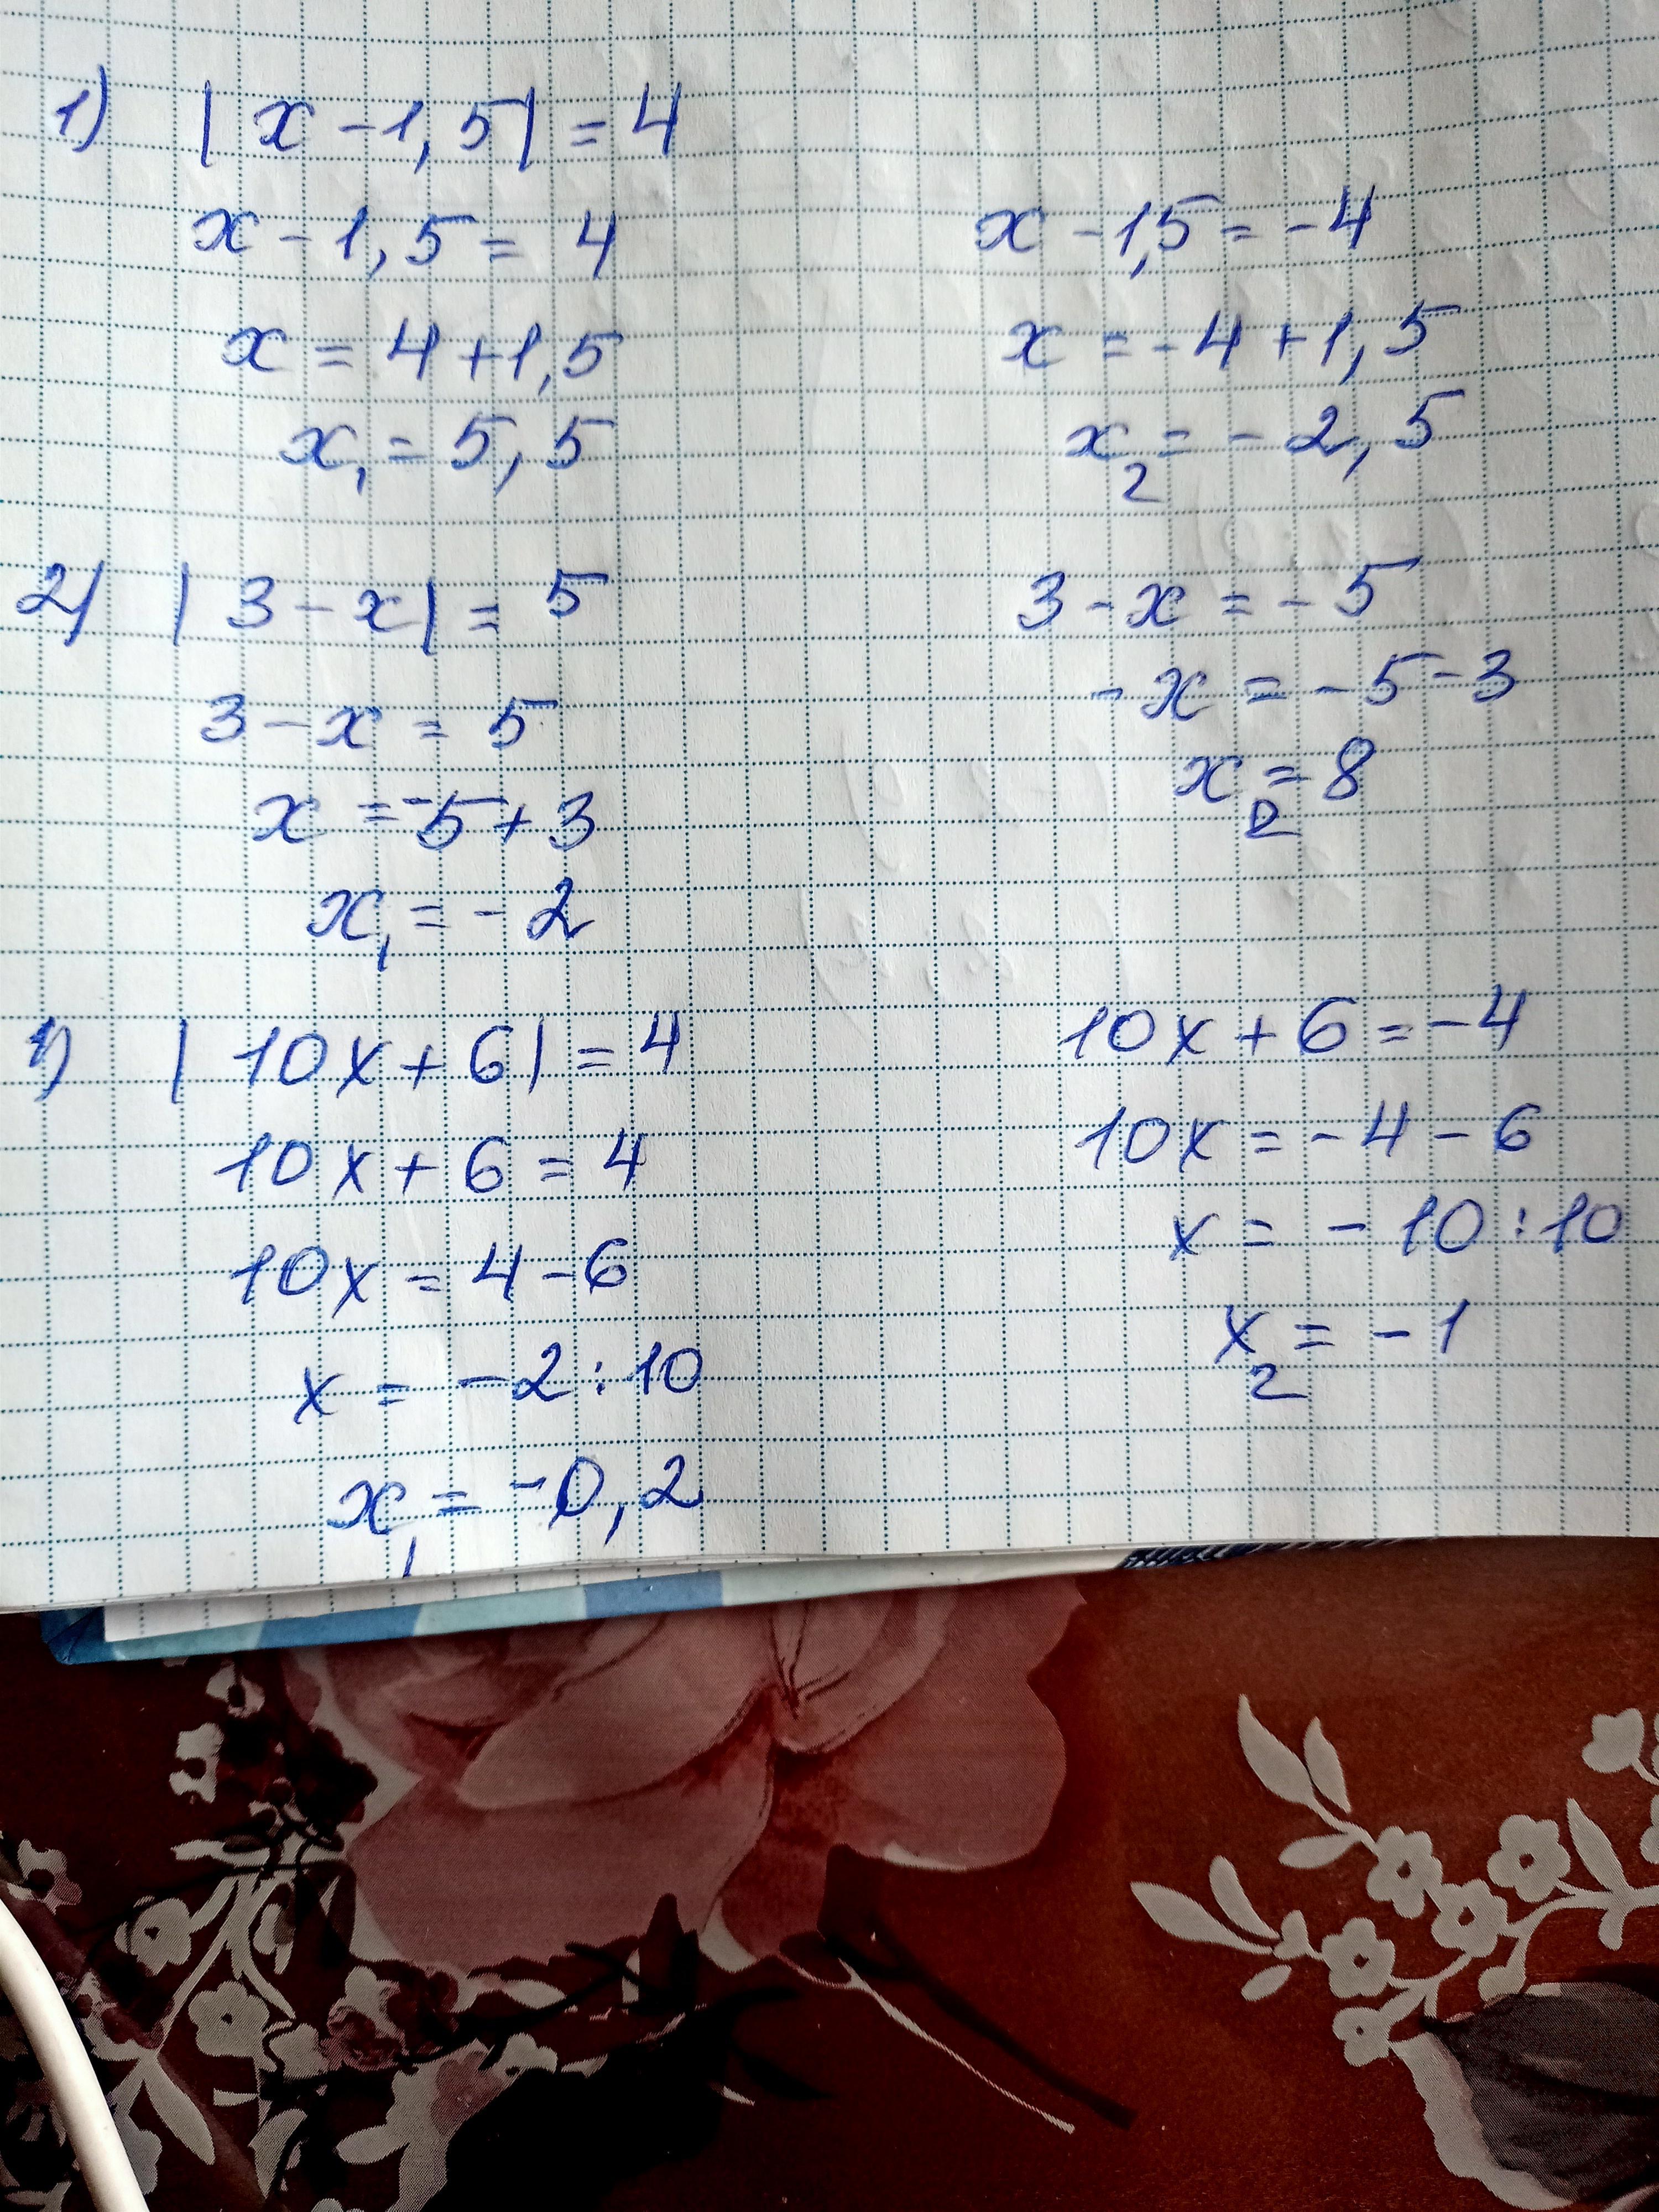 1) |x - 1,5| = 4
x - 1,5 = 4
x = 4 + 1,5
x₁ = 5,5
x - 1,5 = -4
x = -4 + 1,5
x₂ = -2,5
2) |3 - x| = 5
3 - x = 5
x = -5 + 3
x₁ = -2
3 - x = -5
-x = -5 - 3
x₂ = 8
1) |10x + 6| = 4
10x + 6 = 4
10x = 4 - 6
x = -2 : 10
x₁ = -0,2
10x + 6 = -4
10x = -4 - 6
x = -10 : 10
x₂ = -1